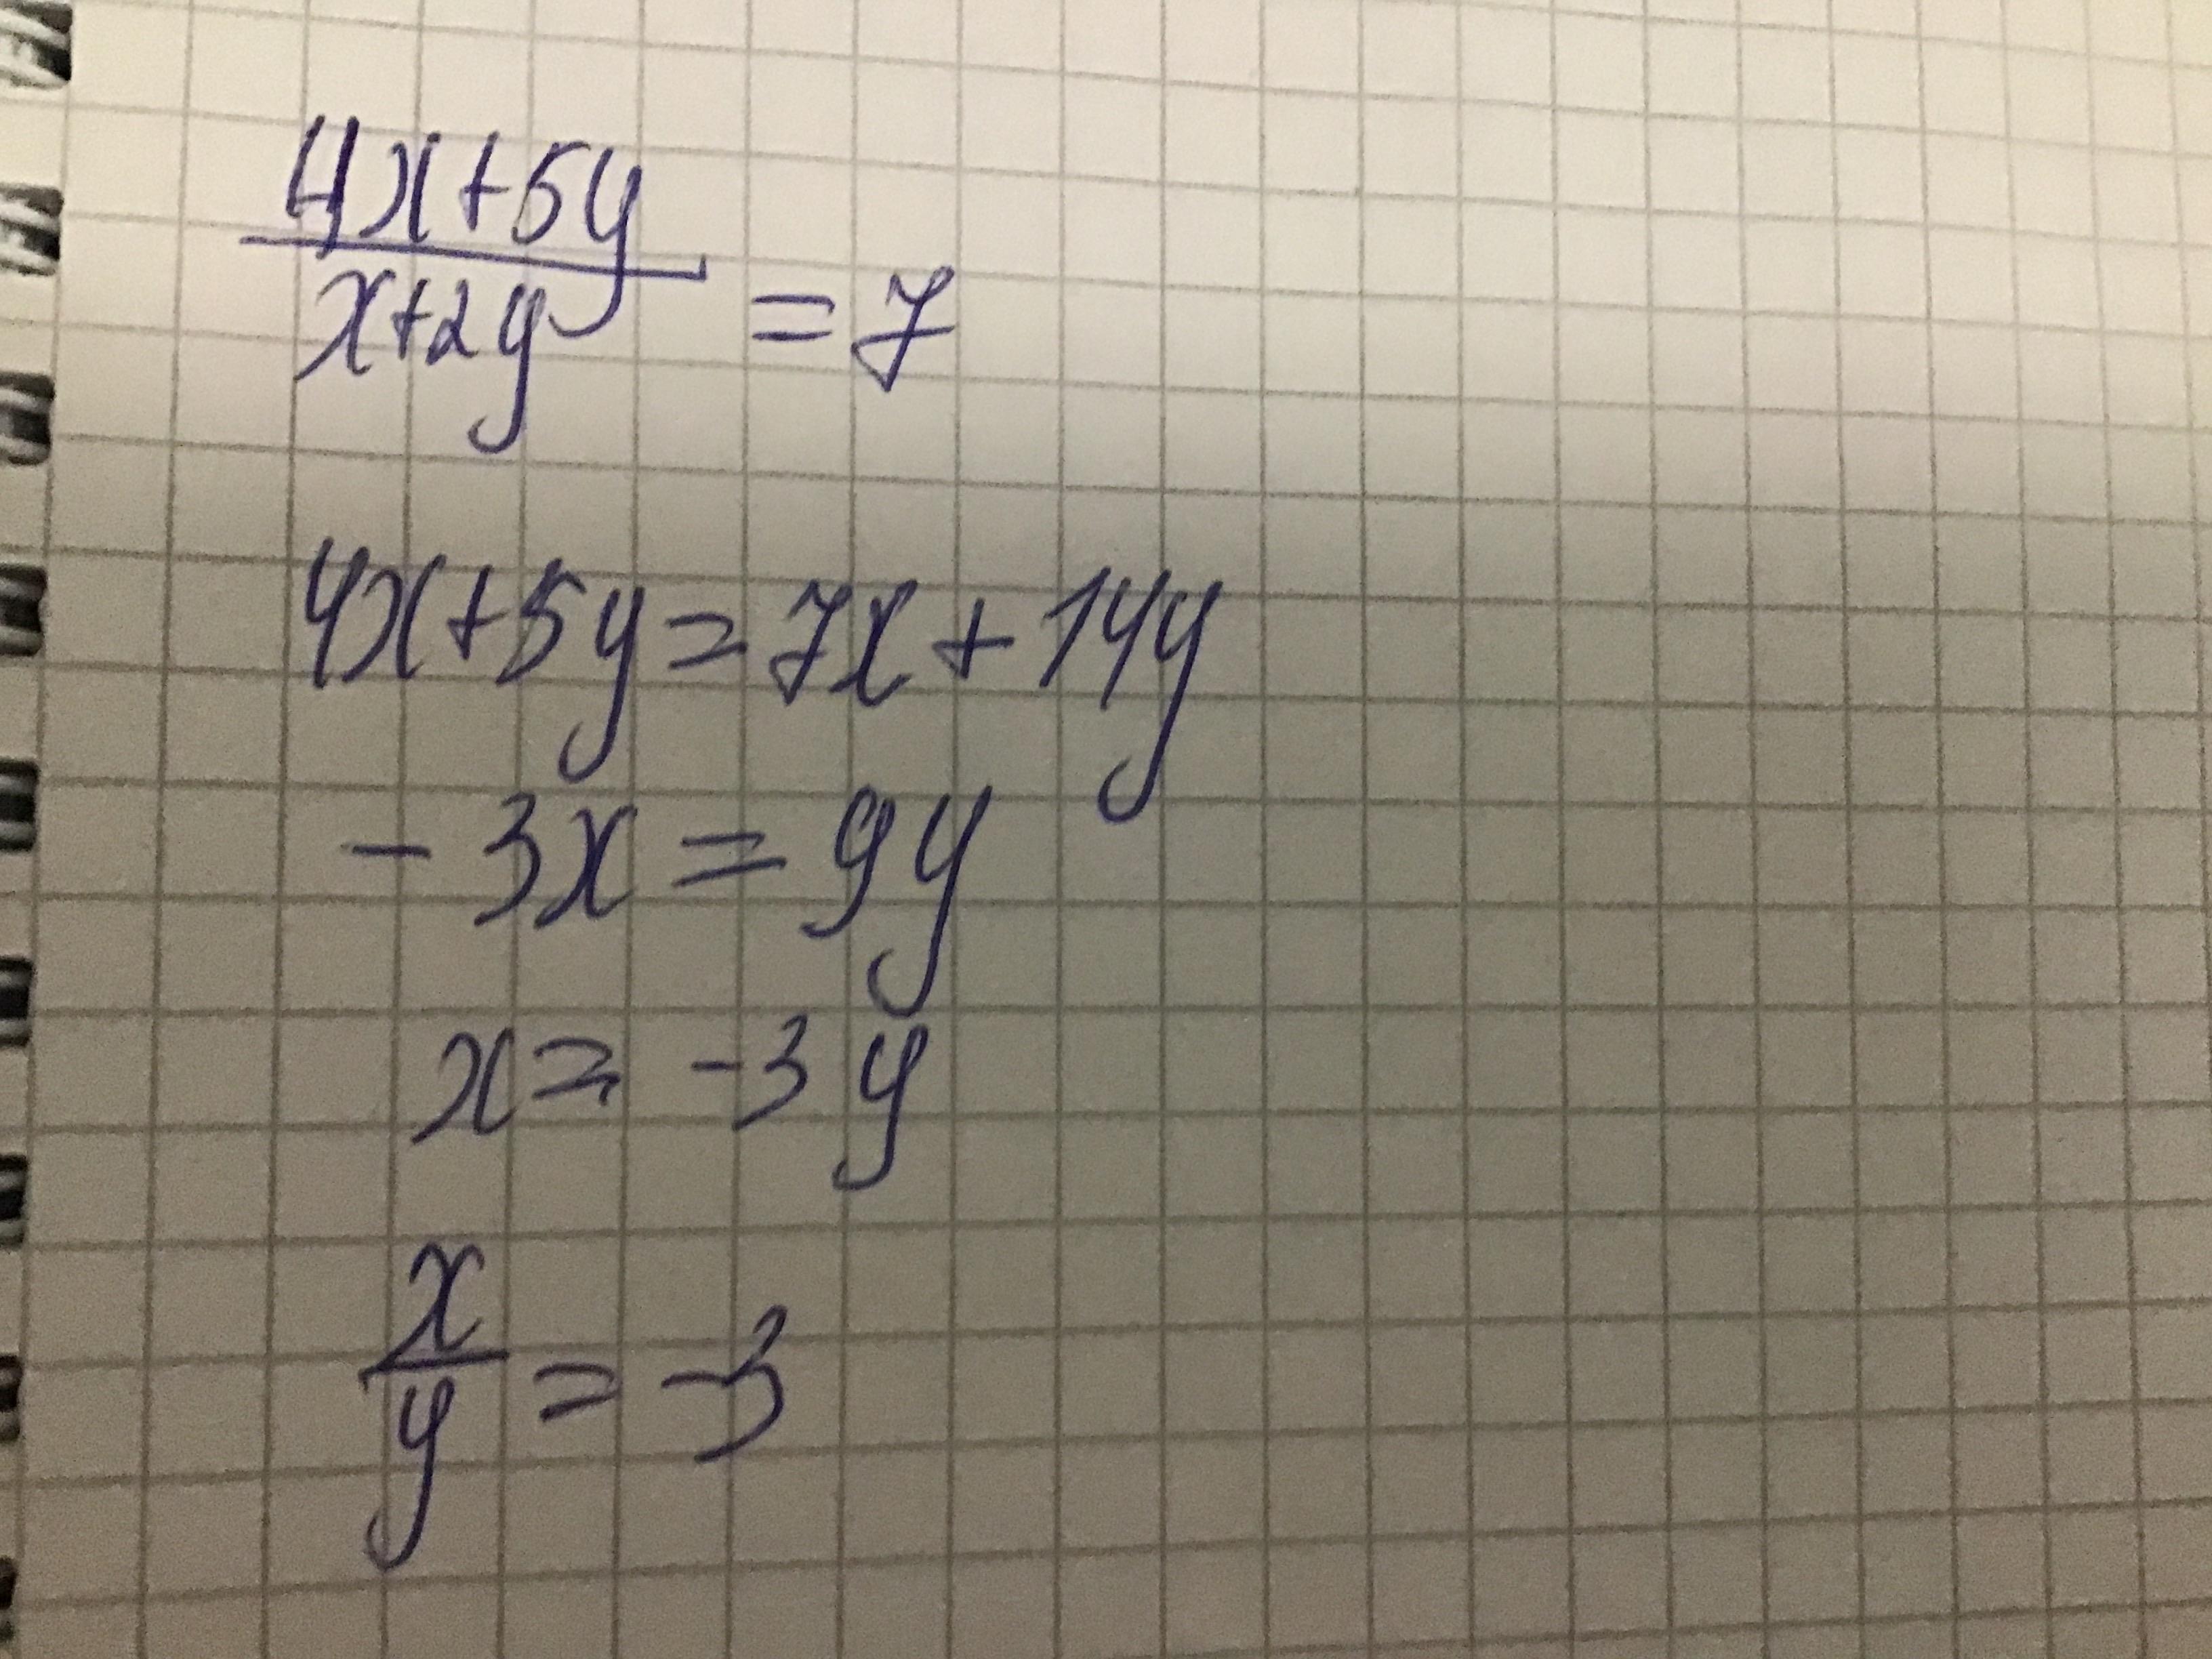 4x+5y
x+2y = 7
4x+5y=7x+14y
-3x=9y
x=-3y
x
y =-3